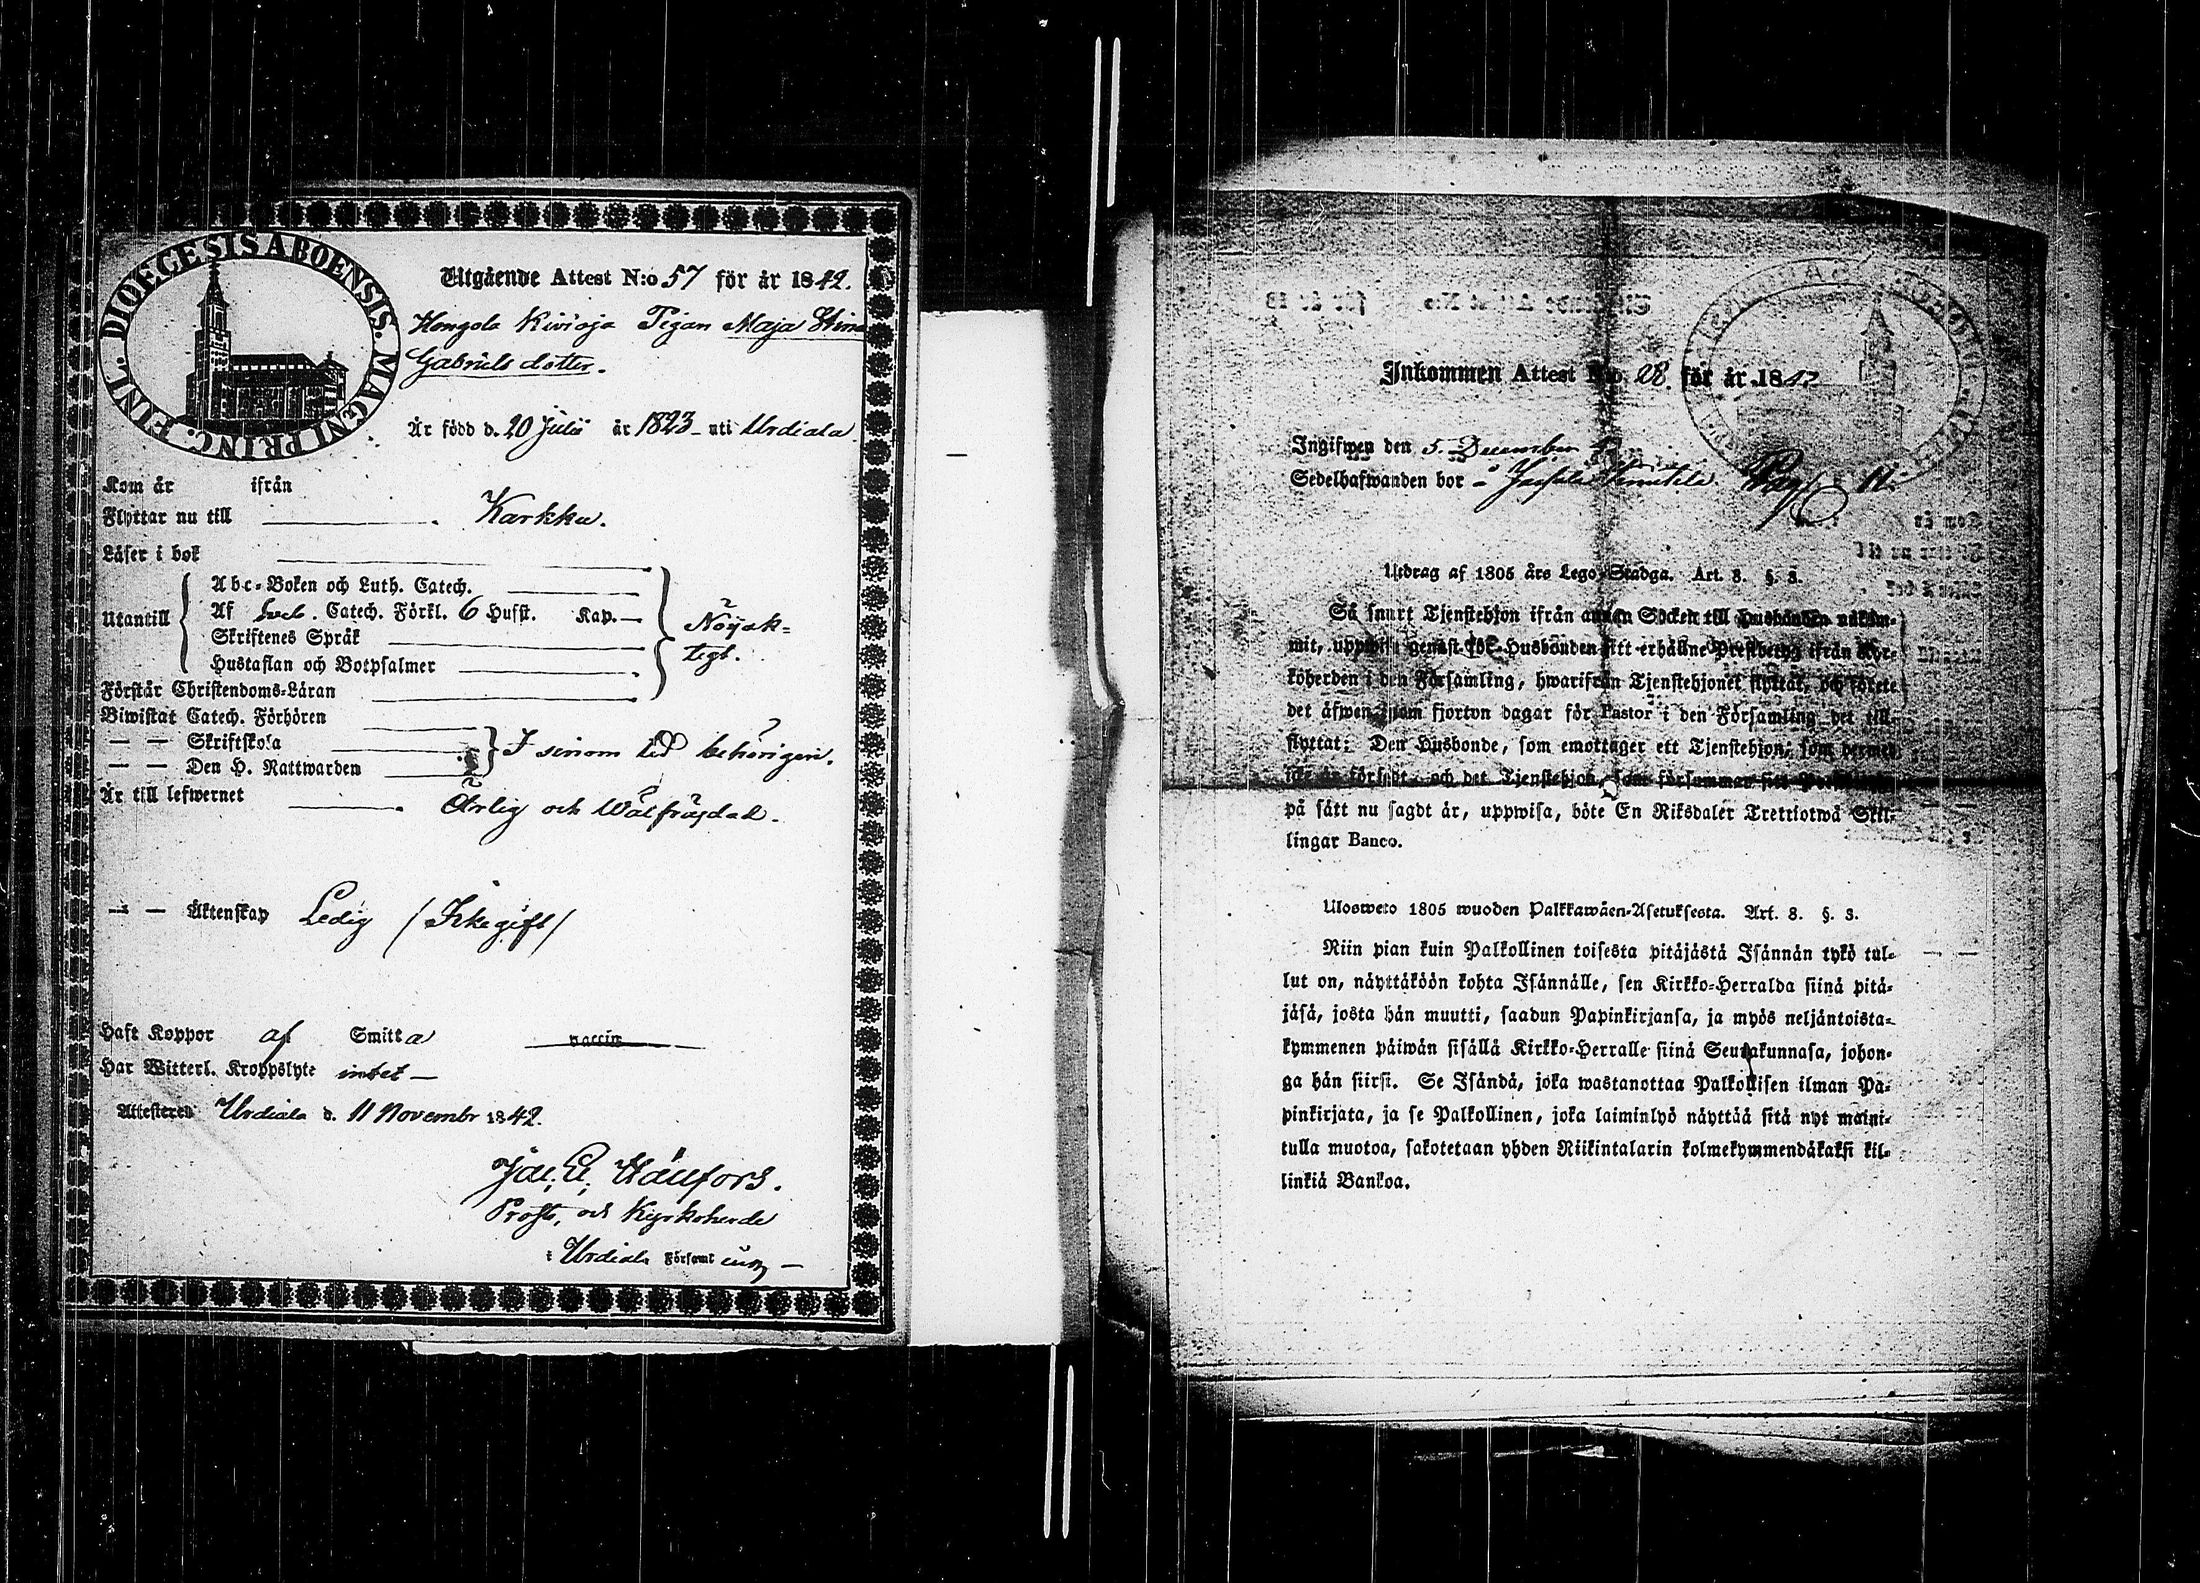 DIOECESIS ABOENSIS. MAGNI PRINC. FINL.
Utgående Attest N:o 57 för år 1842.
Hongola Kivioja Pigan Maja Stina
Gabriels dotter.
Är född d. 20 Julii år 1823 uti Urdiala
Kom år ifrån
Flyttar nu till Karkku.
Läser i bok
Utantill
Abc-Boken och Luth. Catech.
Af Sveb. Catech. Förkl. 6 Hufst. Kap. —
Skriftenes Språk
Hustaflan och Botpsalmer
Nöjak-
tegt.
Förstår Christendoms-Läran
Biwistat Catech. Förhören
— — Skriftskola
— — Den H. Nattwarden
I sinom tid behörigen.
Är till lefwernet Ärlig och Wälfrägdad.
— — Äktenskap Ledig / Icke gift /
Haft Koppor af Smitta vaccin
Har Witterl. Kroppslyte intet —
Attesterer Urdiala d. 11 Novembr 1842.
Prost, och Kyrkoherde
i Urdiala Församl
Inkommen Attest N:o. 28. för år 1842
Ingifwen den 5. December
Sedelhafwanden bor
Utdrag af 1805 års Lego-Stadga. Art. 8. §. 3.
Så snart Tjenstehjon ifrån annan Socken till Husbonden
mit, genast för Husbonden sitt erhållne Prestbetyg ifrån Kyr-
koherden i den Församling, hwarifrån Tjenstehjonet flyttat, och förete
det äfwen inom fjorton dagar för Pastor i den Församling det till-
flyttat; Den Husbonde, som emottager ett Tjenstehjon, som dermed
icke är försedt, och det Tjenstehjon, som försummar sitt
på sätt nu sagdt är, uppwisa, böte En Riksdaler Trettiotwå Skil-
lingar Banco.
Ulosweto 1805 wuoden Palkkawäen-Asetuksesta. Art. 8. §. 3.
Niin pian kuin Palkollinen toisesta pitäjästä Isännän tykö tul-
lut on, näyttäköön kohta Isännälle, sen Kirkko-Herralda siinä pitä-
jäsä, josta hän muutti, saadun Papinkirjansa, ja myös neljäntoista-
kymmenen päiwän sisällä Kirkko-Herralle siinä Seurakunnasa, johon-
ga hän siirsi. Se Isändä, joka wastanottaa Palkollisen ilman Pa-
pinkirjata, ja se Palkollinen, joka laiminlyö näyttää sitä nyt maini-
tulla muotoa, sakotetaan yhden Riikintalarin kolmekymmendäkaksi kil-
linkiä Bankoa.